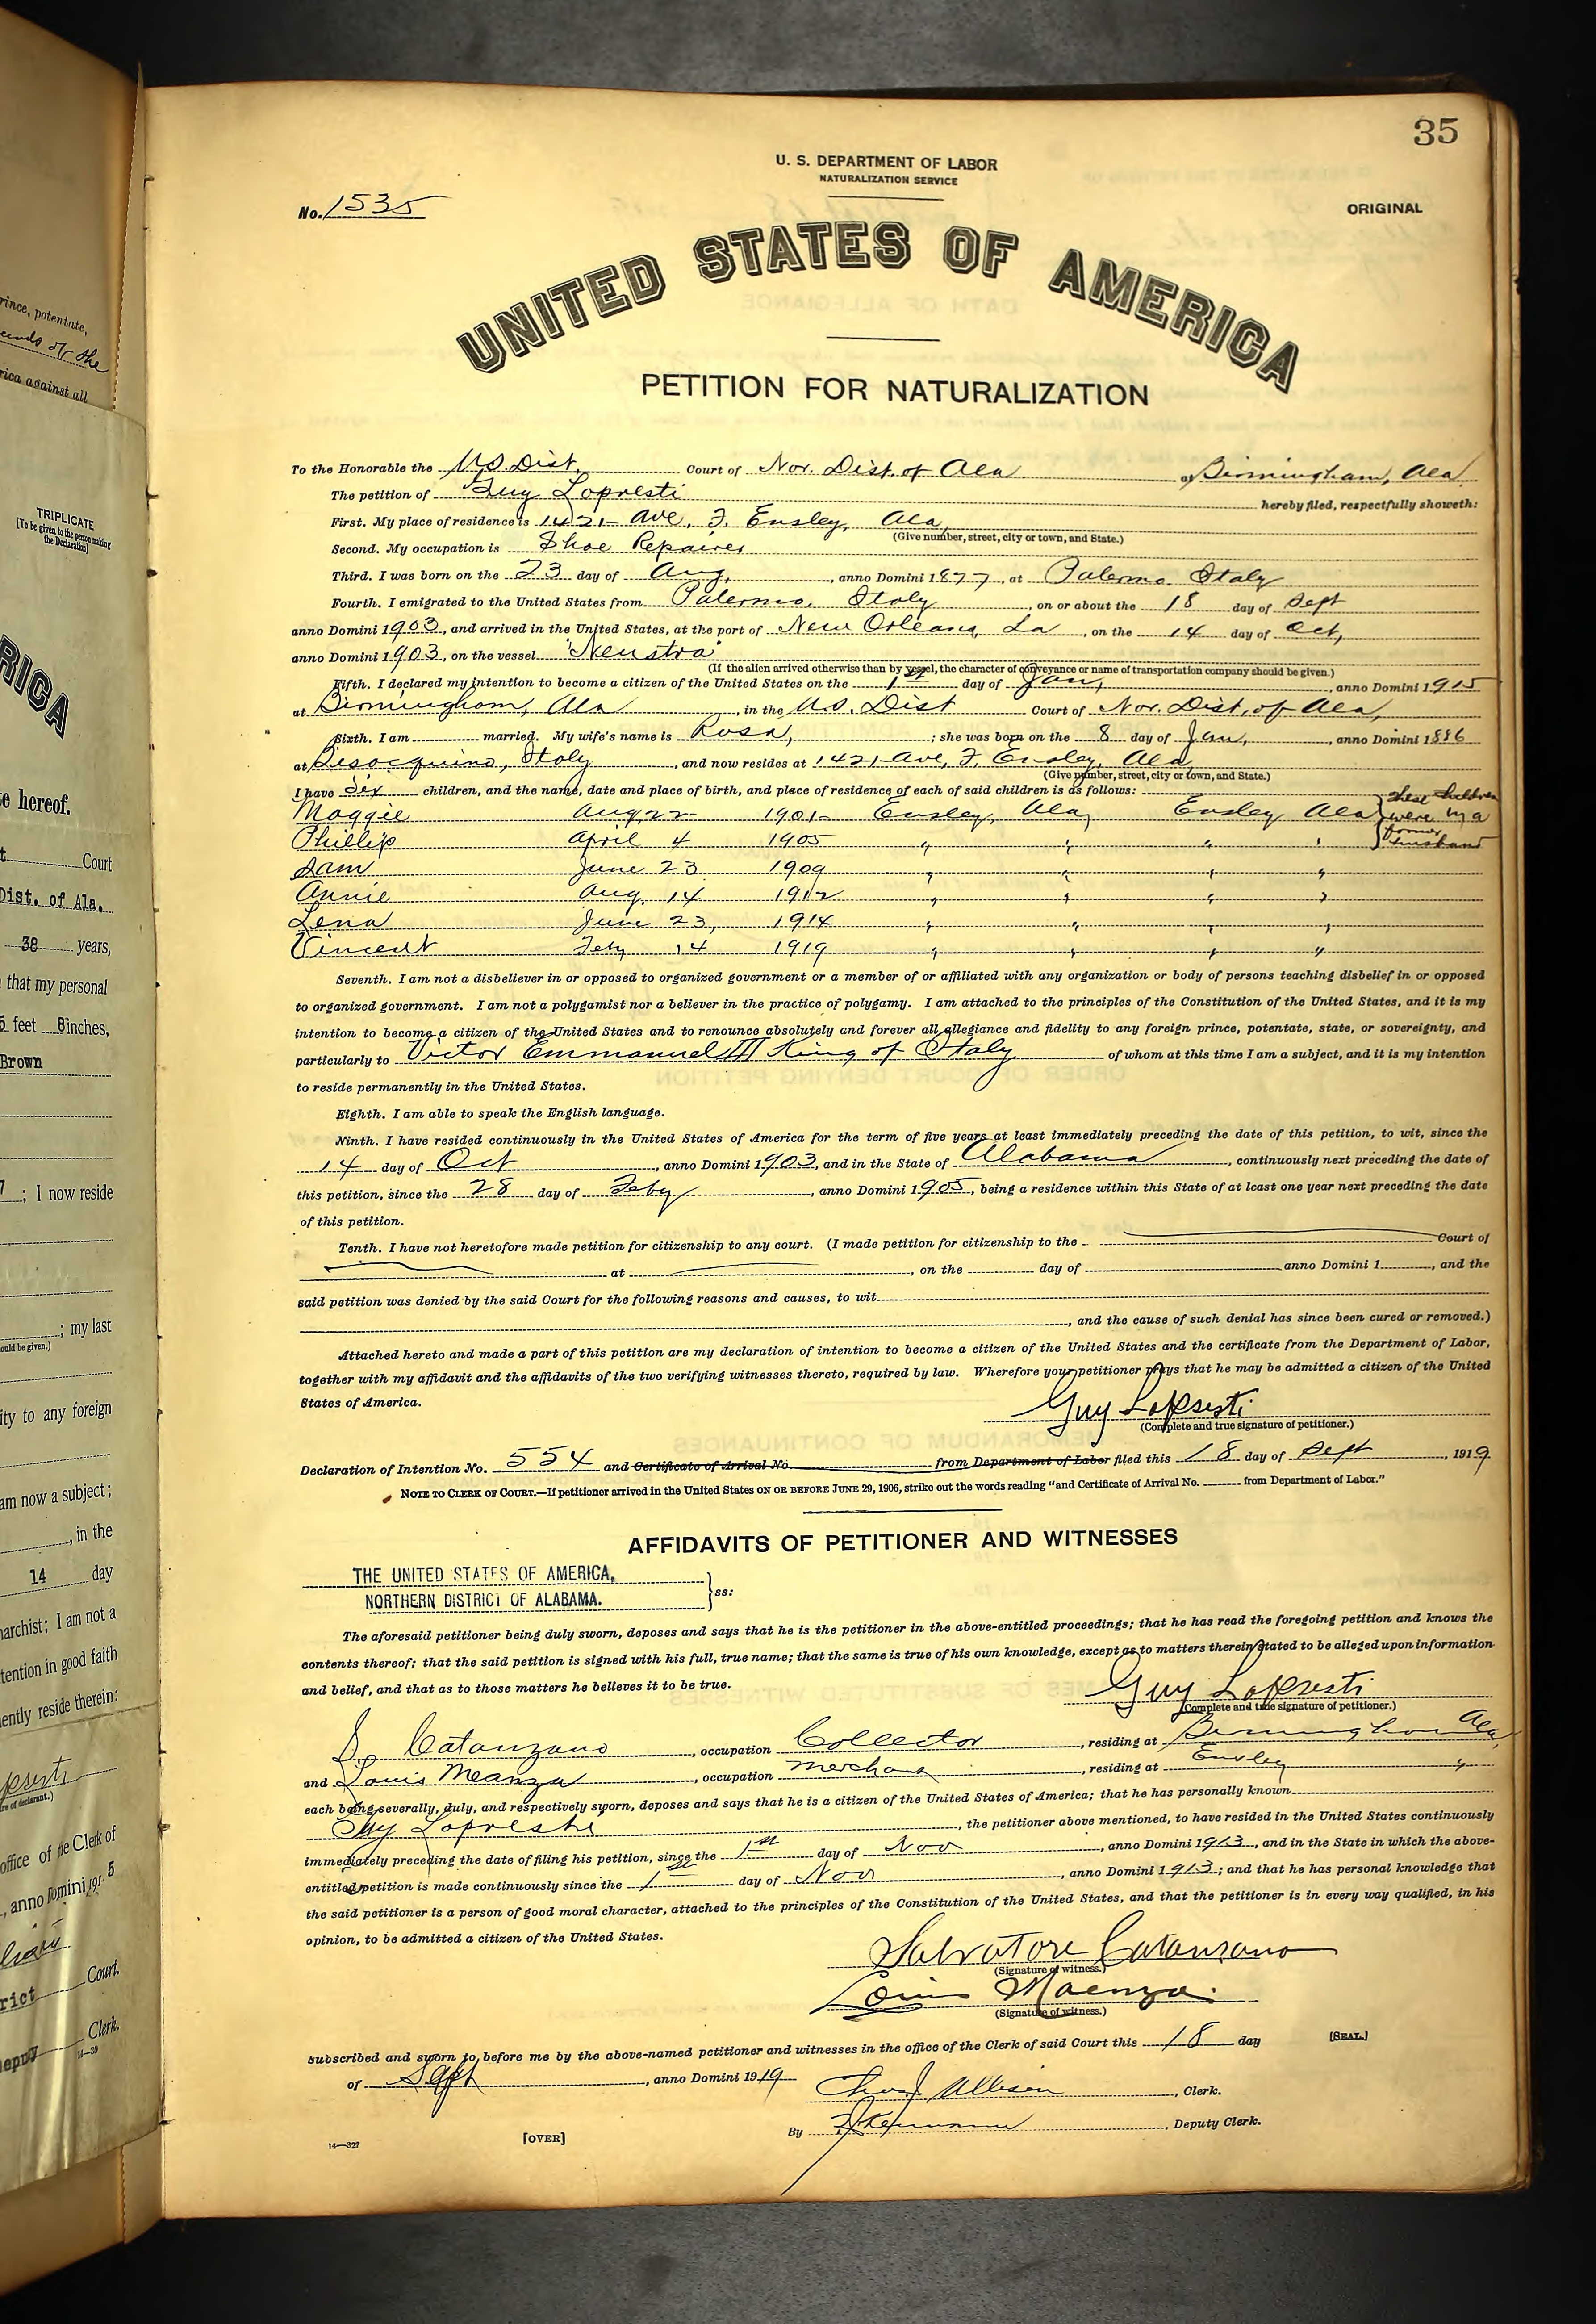 35
U. S. DEPARTMENT OF LABOR
NATURALIZATION SERVICE
No. 1535
ORIGINAL
UNITED STATES OF AMERICA
PETITION FOR NATURALIZATION
To the Honorable the U.S. Dist. Court of Nor. Dist. of Ala at Birmingham, Ala
The petition of Guy Lopresti hereby filed, respectfully showeth:
First. My place of residence is 1421- Ave. F. Ensley, Ala,
(Give number, street, city or town, and State.)
Second. My occupation is Shoe Repairer
Third. I was born on the 23 day of Aug, anno Domini 1877, at Palermo Italy
Fourth. I emigrated to the United States from Palermo, Italy, on or about the 18 day of Sept
anno Domini 1903, and arrived in the United States, at the port of New Orleans, La, on the 14 day of Oct,
anno Domini 1903, on the vessel "Neustra"
(If the alien arrived otherwise than by vessel, the character of conveyance or name of transportation company should be given.)
Fifth. I declared my intention to become a citizen of the United States on the 1st day of Jan, anno Domini 1915
at Birmingham, Ala, in the U.S. Dist Court of Nor. Dist, of Ala,
Sixth. I am married. My wife's name is Rosa, ; she was born on the 8 day of Jan, anno Domini 1886
at Bisacquino, Italy, and now resides at 1421 Ave, F. Ensley, Ala
(Give number, street, city or town, and State.)
I have Six children, and the name, date and place of birth, and place of residence of each of said children is as follows:
Maggie Aug, 22 1901- Ensley, Ala, Ensley Ala } these children were by a former husband
Phillip April 4 1905 " " " "
Sam June 23 1909 " " " "
Annie Aug. 14 1912 " " " "
Lena June 23, 1914 " " " "
Vincent Feby 14 1919 " " " "
Seventh. I am not a disbeliever in or opposed to organized government or a member of or affiliated with any organization or body of persons teaching disbelief in or opposed
to organized government. I am not a polygamist nor a believer in the practice of polygamy. I am attached to the principles of the Constitution of the United States, and it is my
intention to become a citizen of the United States and to renounce absolutely and forever all allegiance and fidelity to any foreign prince, potentate, state, or sovereignty, and
particularly to Victor Emmanuel III King of Italy of whom at this time I am a subject, and it is my intention
to reside permanently in the United States.
Eighth. I am able to speak the English language.
Ninth. I have resided continuously in the United States of America for the term of five years at least immediately preceding the date of this petition, to wit, since the
14 day of Oct, anno Domini 1903, and in the State of Alabama, continuously next preceding the date of
this petition, since the 28 day of Feby, anno Domini 1905, being a residence within this State of at least one year next preceding the date
of this petition.
Tenth. I have not heretofore made petition for citizenship to any court. (I made petition for citizenship to the Court of
at , on the day of anno Domini 1 , and the
said petition was denied by the said Court for the following reasons and causes, to wit
, and the cause of such denial has since been cured or removed.)
Attached hereto and made a part of this petition are my declaration of intention to become a citizen of the United States and the certificate from the Department of Labor,
together with my affidavit and the affidavits of the two verifying witnesses thereto, required by law. Wherefore your petitioner prays that he may be admitted a citizen of the United
States of America.
Guy Lopresti
(Complete and true signature of petitioner.)
Declaration of Intention No. 554 and Certificate of Arrival No. from Department of Labor filed this 18 day of Sept, 1919
NOTE TO CLERK OF COURT.—If petitioner arrived in the United States ON OR BEFORE JUNE 29, 1906, strike out the words reading "and Certificate of Arrival No. from Department of Labor."
AFFIDAVITS OF PETITIONER AND WITNESSES
THE UNITED STATES OF AMERICA,
NORTHERN DISTRICT OF ALABAMA.
} ss:
The aforesaid petitioner being duly sworn, deposes and says that he is the petitioner in the above-entitled proceedings; that he has read the foregoing petition and knows the
contents thereof; that the said petition is signed with his full, true name; that the same is true of his own knowledge, except as to matters therein stated to be alleged upon information
and belief, and that as to those matters he believes it to be true.
Guy Lopresti
(Complete and true signature of petitioner.)
S. Catanzano, occupation Collector, residing at Birmingham Ala,
and Louis Meanza, occupation Merchant, residing at Ensley "
each being severally, duly, and respectively sworn, deposes and says that he is a citizen of the United States of America; that he has personally known
Guy Lopreshi, the petitioner above mentioned, to have resided in the United States continuously
immediately preceding the date of filing his petition, since the 1st day of Nov, anno Domini 1913, and in the State in which the above-
entitled petition is made continuously since the 1st day of Nov, anno Domini 1913; and that he has personal knowledge that
the said petitioner is a person of good moral character, attached to the principles of the Constitution of the United States, and that the petitioner is in every way qualified, in his
opinion, to be admitted a citizen of the United States.
Salvatore Catanzano
(Signature of witness.)
Louis Maenza
(Signature of witness.)
Subscribed and sworn to before me by the above-named petitioner and witnesses in the office of the Clerk of said Court this 18 day
[SEAL.]
of Sept, anno Domini 1919
Chas J Allison, Clerk.
By , Deputy Clerk.
14—327
[OVER]
rince, potentate,
of the
rica against all
TRIPLICATE
[To be given to the person making
the Declaration]
RICA
e hereof.
t Court
Dist. of Ala.
38 years,
that my personal
5 feet 8 inches,
Brown
7 ; I now reside
; my last
ould be given.)
ity to any foreign
am now a subject;
, in the
14 day
narchist; I am not a
tention in good faith
ently reside therein:
presti
re of declarant.)
office of the Clerk of
, anno Domini 191 5
rict Court.
Deputy Clerk.
14—39